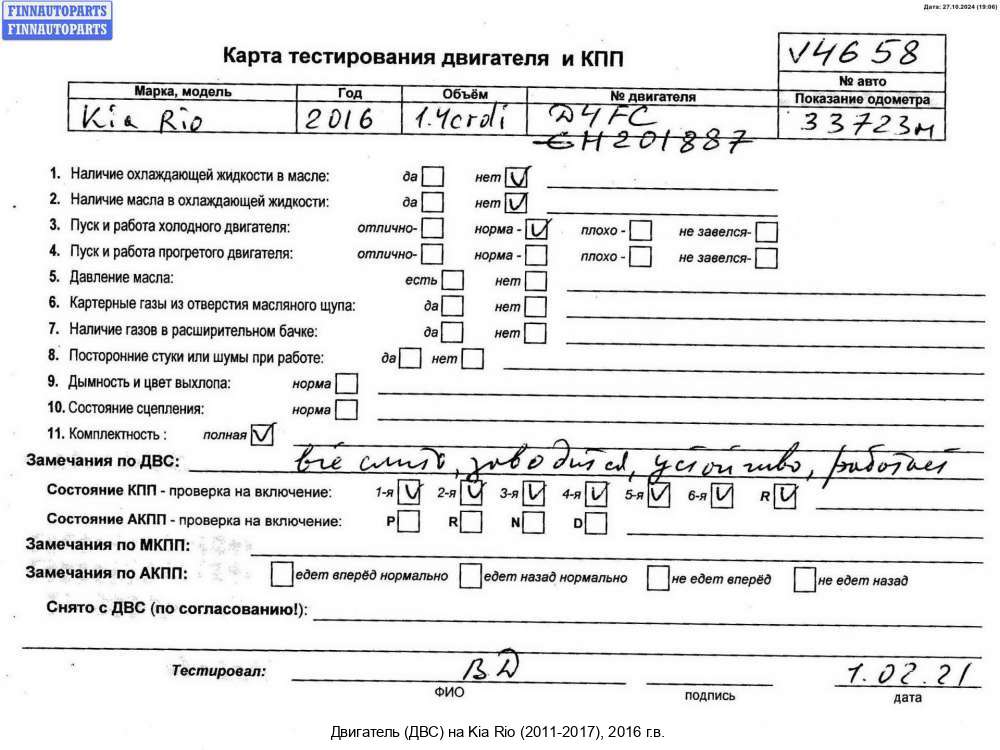 FINNAUTOPARTS
FINNAUTOPARTS
Дата: 27.10.2024 (19:06)
Карта тестирования двигателя и КПП
V4658
№ авто
Марка, модель Год Объём № двигателя Показание одометра
Kia Rio 2016 1.4crdi D4FC 33723м
GH201887
1. Наличие охлаждающей жидкости в масле: да нет
2. Наличие масла в охлаждающей жидкости: да нет
3. Пуск и работа холодного двигателя: отлично- норма - плохо - не завелся-
4. Пуск и работа прогретого двигателя: отлично- норма - плохо - не завелся-
5. Давление масла: есть нет
6. Картерные газы из отверстия масляного щупа: да нет
7. Наличие газов в расширительном бачке: да нет
8. Посторонние стуки или шумы при работе: да нет
9. Дымность и цвет выхлопа: норма
10. Состояние сцепления: норма
11. Комплектность : полная
Замечания по ДВС: всё слито, заводится, устойчиво, работает
Состояние КПП - проверка на включение: 1-я 2-я 3-я 4-я 5-я 6-я R
Состояние АКПП - проверка на включение: P R N D
Замечания по МКПП:
Замечания по АКПП: едет вперёд нормально едет назад нормально не едет вперёд не едет назад
Снято с ДВС (по согласованию!):
Тестировал: ВД 1.02.21
ФИО подпись дата
Двигатель (ДВС) на Kia Rio (2011-2017), 2016 г.в.